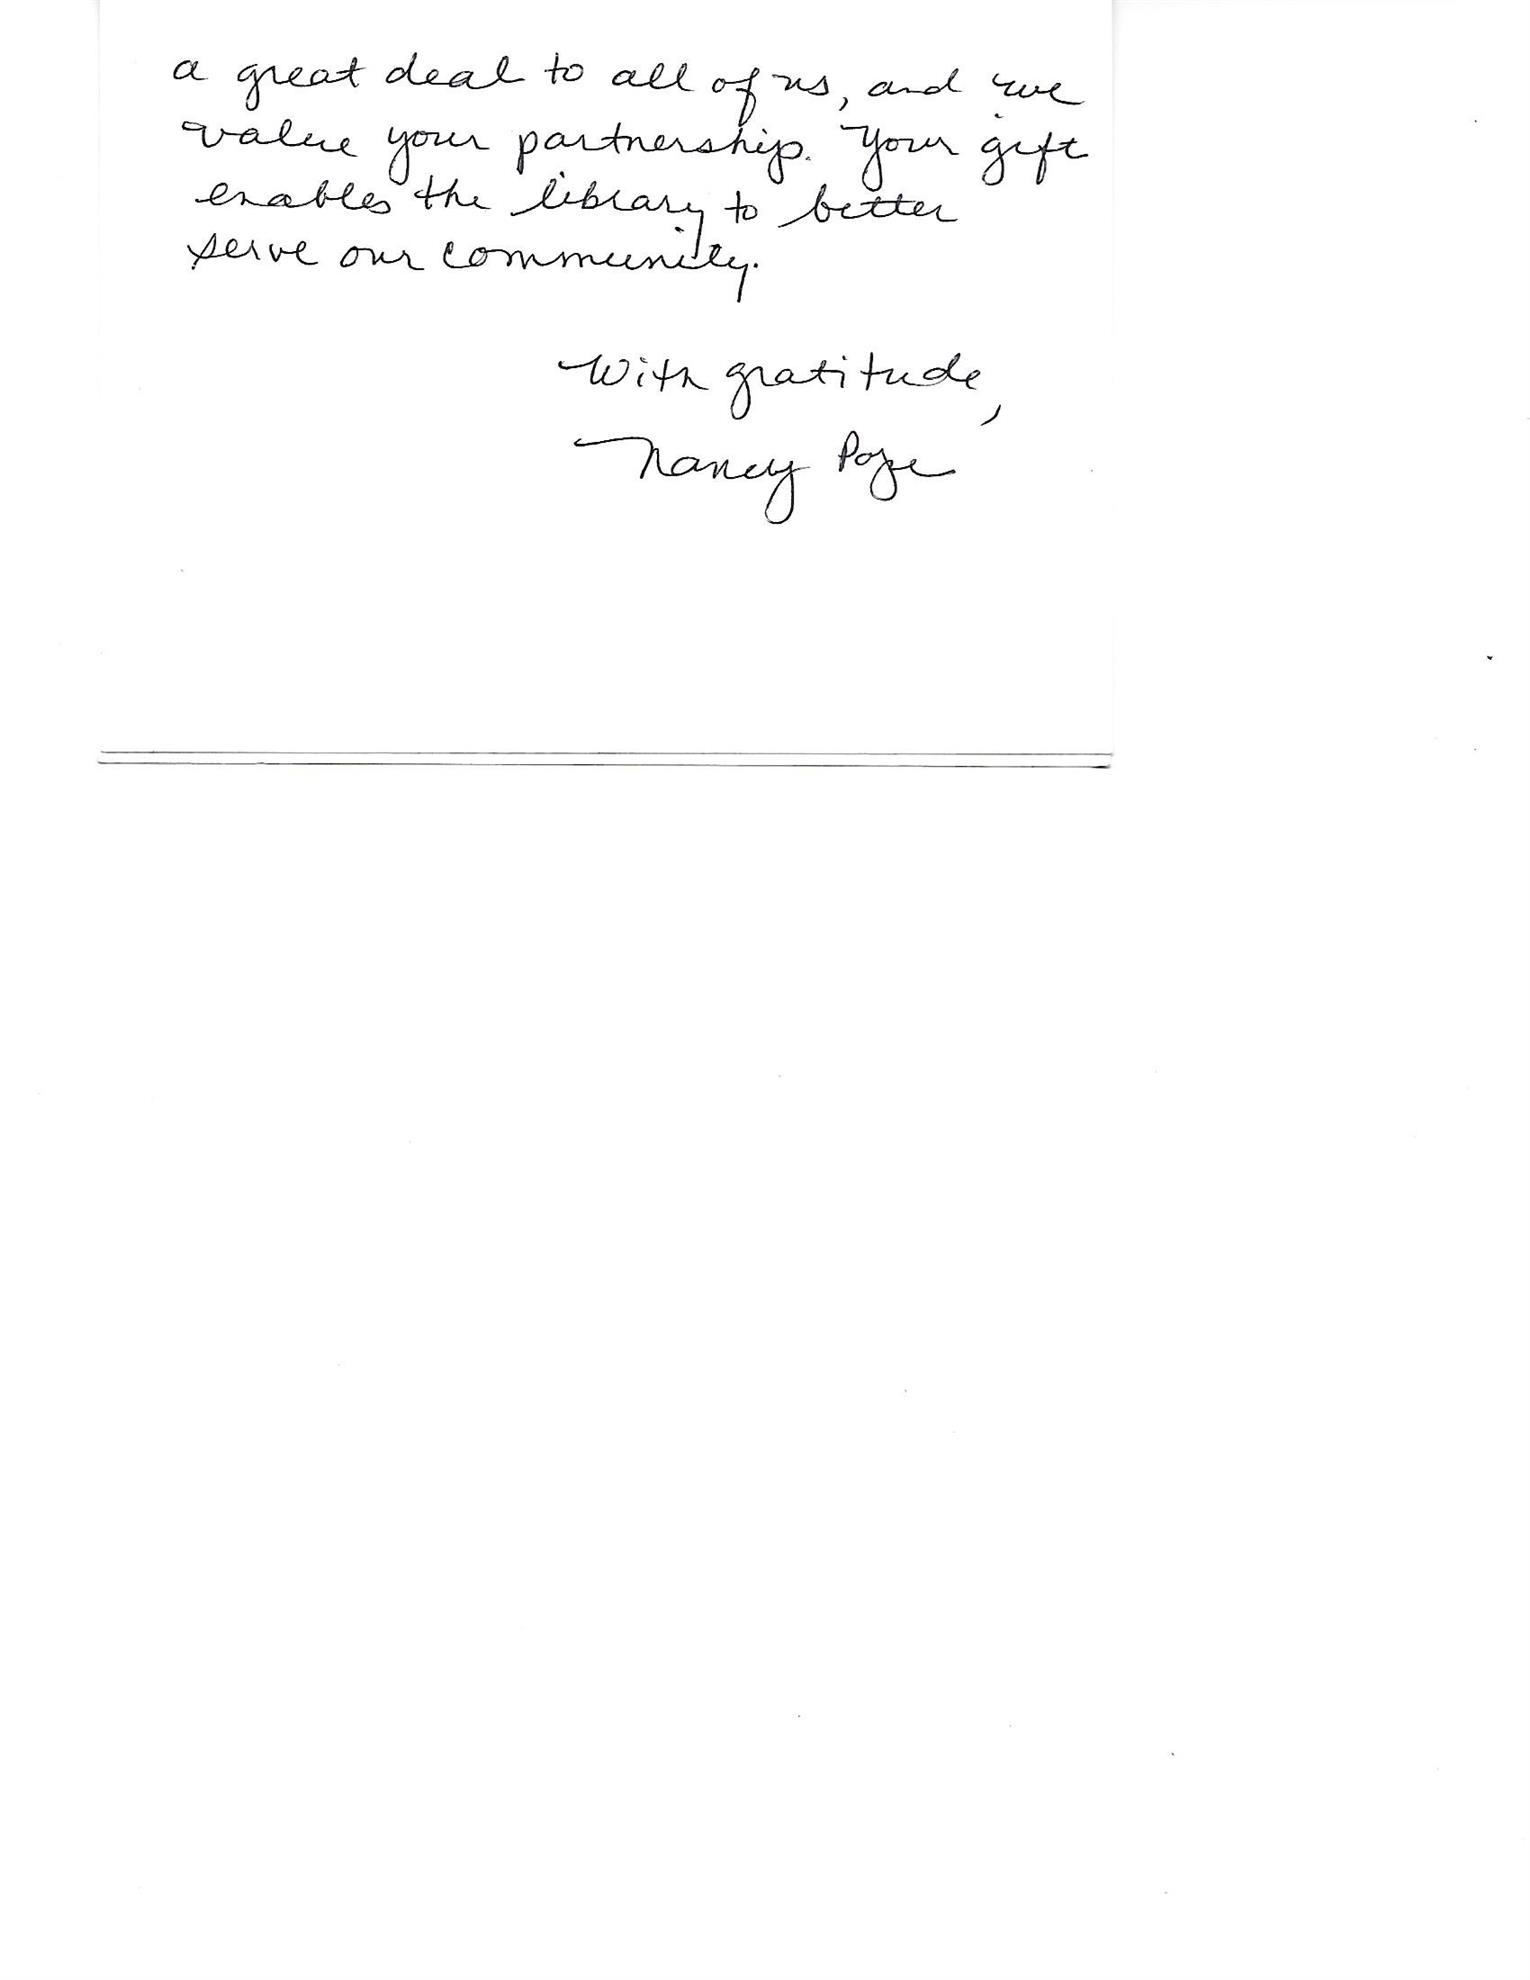 a great deal to all of us, and we
value your partnership. Your gift
enables the library to better
serve our community.
With gratitude,
Nancy Pope